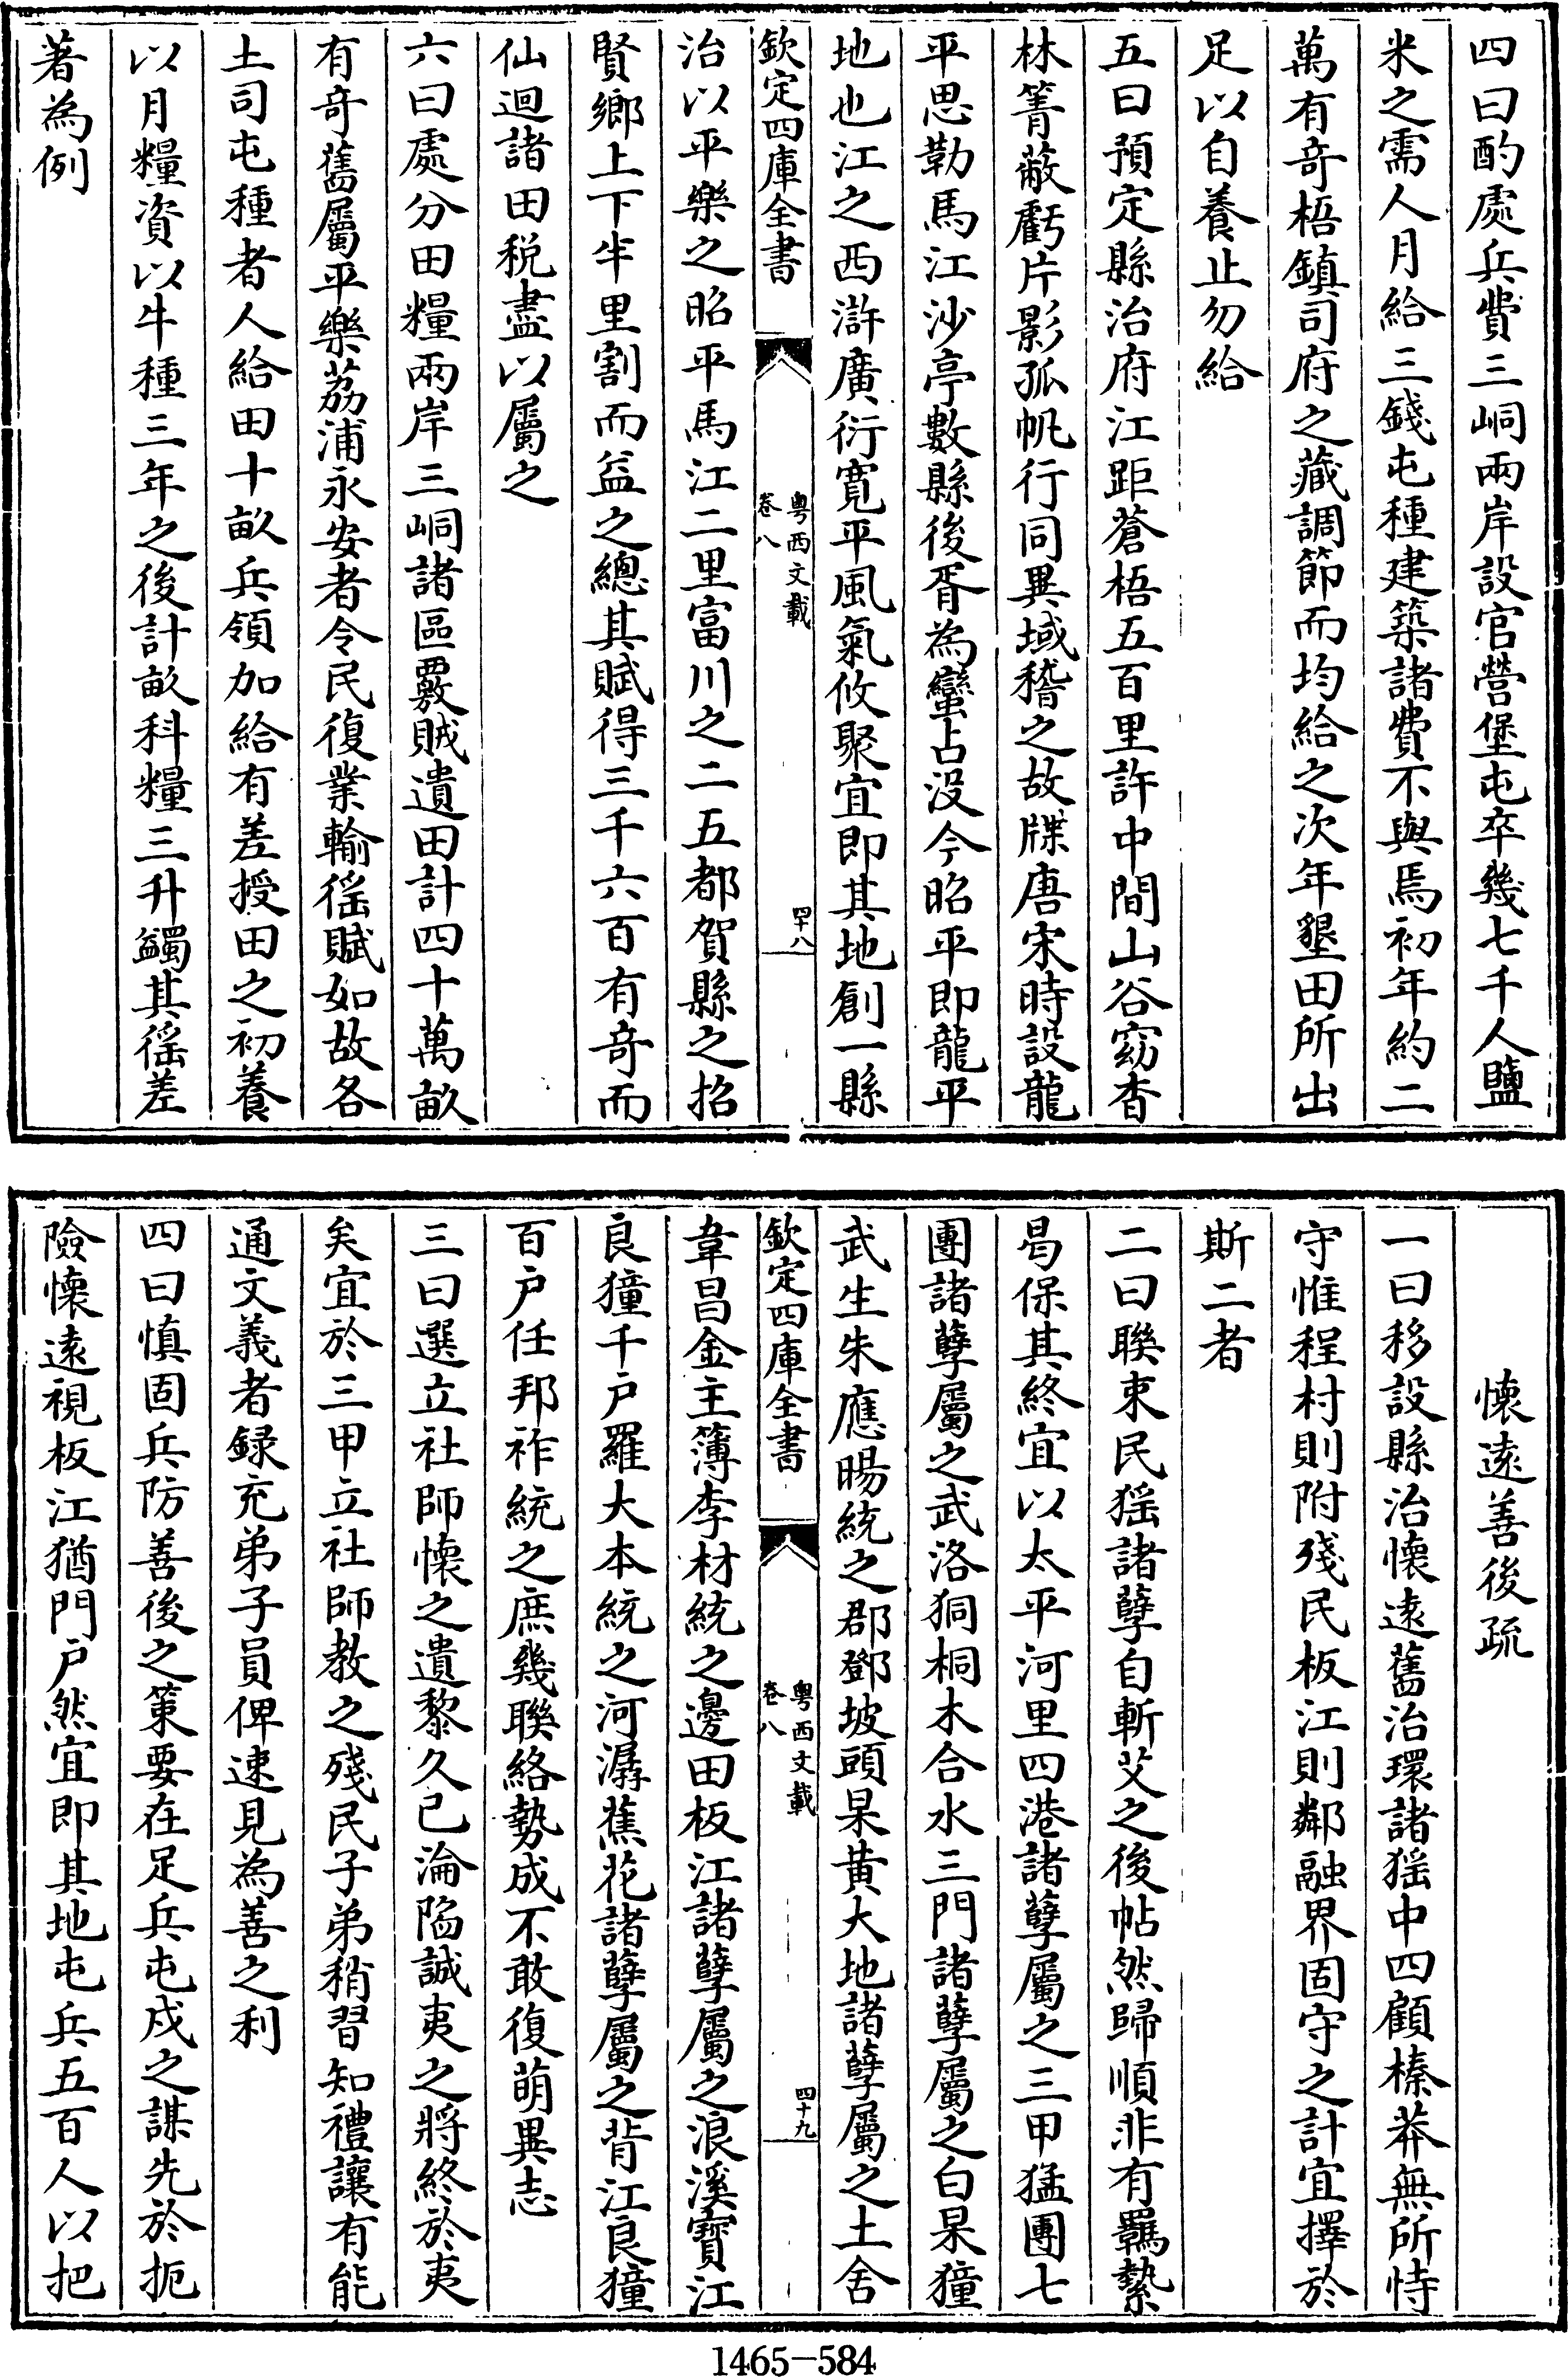 四曰酌處兵費三峒兩岸設官營堡屯卒幾七千人鹽
米之需人月給三錢屯種建築諸費不與焉初年約二
萬有竒梧鎮司府之藏調節而均給之次年墾田所出
足以自養止勿給
五曰預定縣治府江距蒼梧五百里許中間山谷窈杳
林箐蔽虧片影孤帆行同異域稽之故牒唐宋時設龍
平思勒馬江沙亭數縣後胥為蠻占沒今昭平即龍平
地也江之西滸廣衍寬平風氣攸聚宜即其地創一縣
欽定四庫全書
粤西文載
卷八
四十八
治以平樂之昭平馬江二里富川之二五都賀縣之招
賢鄉上下半里割而益之總其賦得三千六百有竒而
仙迴諸田稅盡以屬之
六曰處分田糧兩岸三峒諸區覈賊遺田計四十萬畝
有竒舊屬平樂荔浦永安者令民復業輸徭賦如故各
土司屯種者人給田十畝兵領加給有差授田之初養
以月糧資以牛種三年之後計畝科糧三升蠲其徭差
著為例
懷遠善後疏
一曰移設縣治懷遠舊治環諸猺中四顧榛莽無所恃
守惟程村則附殘民板江則鄰融界固守之計宜擇於
斯二者
二曰聯束民猺諸孽自斬艾之後帖然歸順非有羈縶
曷保其終宜以太平河里四港諸孽屬之三甲猛團七
團諸孽屬之武洛狪桐木合水三門諸孽屬之白杲獞
武生朱應暘統之郡鄧坡頭杲黄大地諸孽屬之土舍
欽定四庫全書
粤西文載
卷八
四十九
韋昌金主簿李材統之邊田板江諸孽屬之浪溪寶江
良獞千户羅大本統之河潺蕉花諸孽屬之背江良獞
百户任邦祚統之庶幾聯絡勢成不敢復萌異志
三曰選立社師懷之遺黎久已淪陷誠夷之將終於夷
矣宜於三甲立社師教之殘民子弟稍習知禮讓有能
通文義者録充弟子員俾速見為善之利
四曰慎固兵防善後之策要在足兵屯戍之謀先於扼
險懷遠視板江猶門户然宜即其地屯兵五百人以把
1465-584